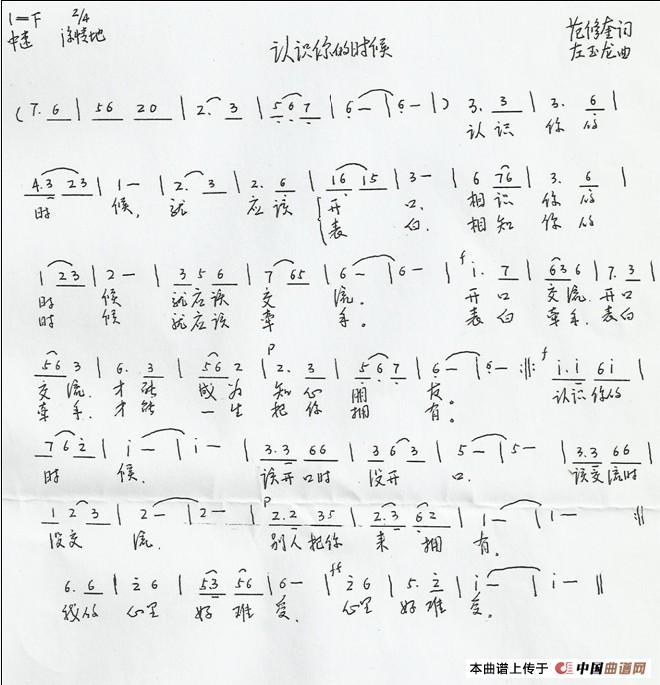 1=F 2/4
中速 深情地
认识你的时候
范修奎词
左玉龙曲
(7. 6 | 56 20 | 2. 3 | 5 6 7 | 6 - | 6 - |) 3. 3 | 3. 6 |
认识 你的
4.3 23 | 1 - | 2. 3 | 2. 6 | 16 15 | 3 - | 6 76 | 3. 6 |
时 候, 就 应该 开 口. 相识 你的
表 白. 相知 你的
1 23 | 2 - | 3 5 6 | 7 65 | 6 - | 6 - | f i. 7 | 636 | 7. 3 |
时 候 就应该 交 流. 开口 交流. 开口
时 候 就应该 牵 手。 表白 牵手. 表白
56 3 | 6. 3 | 56 2 | p 2. 3 | 5 6 7 | 6 - | 6 - :||: f i.i 6i |
交流. 才能 成为 知心 朋 友。 认识你的
牵手. 才能 一生 把你 拥 有。
7 6 2 | i - | i - | 3.3 66 | 3 6 3 | 5 - | 5 - | 3.3 66 |
时 候. 该开口时 没开 口. 该交流时
1 2 3 | 2 - | 2 - | p 2.2 35 | 2.3 62 | 1 - | 1 - :||
没交 流. 别人把你 来 拥 有.
6. 6 | 2 6 | 53 56 | 6 - | ff 2 6 | 5. 2 | i - | i - ||
我的 心里 好 难 受. 心里 好难 受.
本曲谱上传于 中国曲谱网